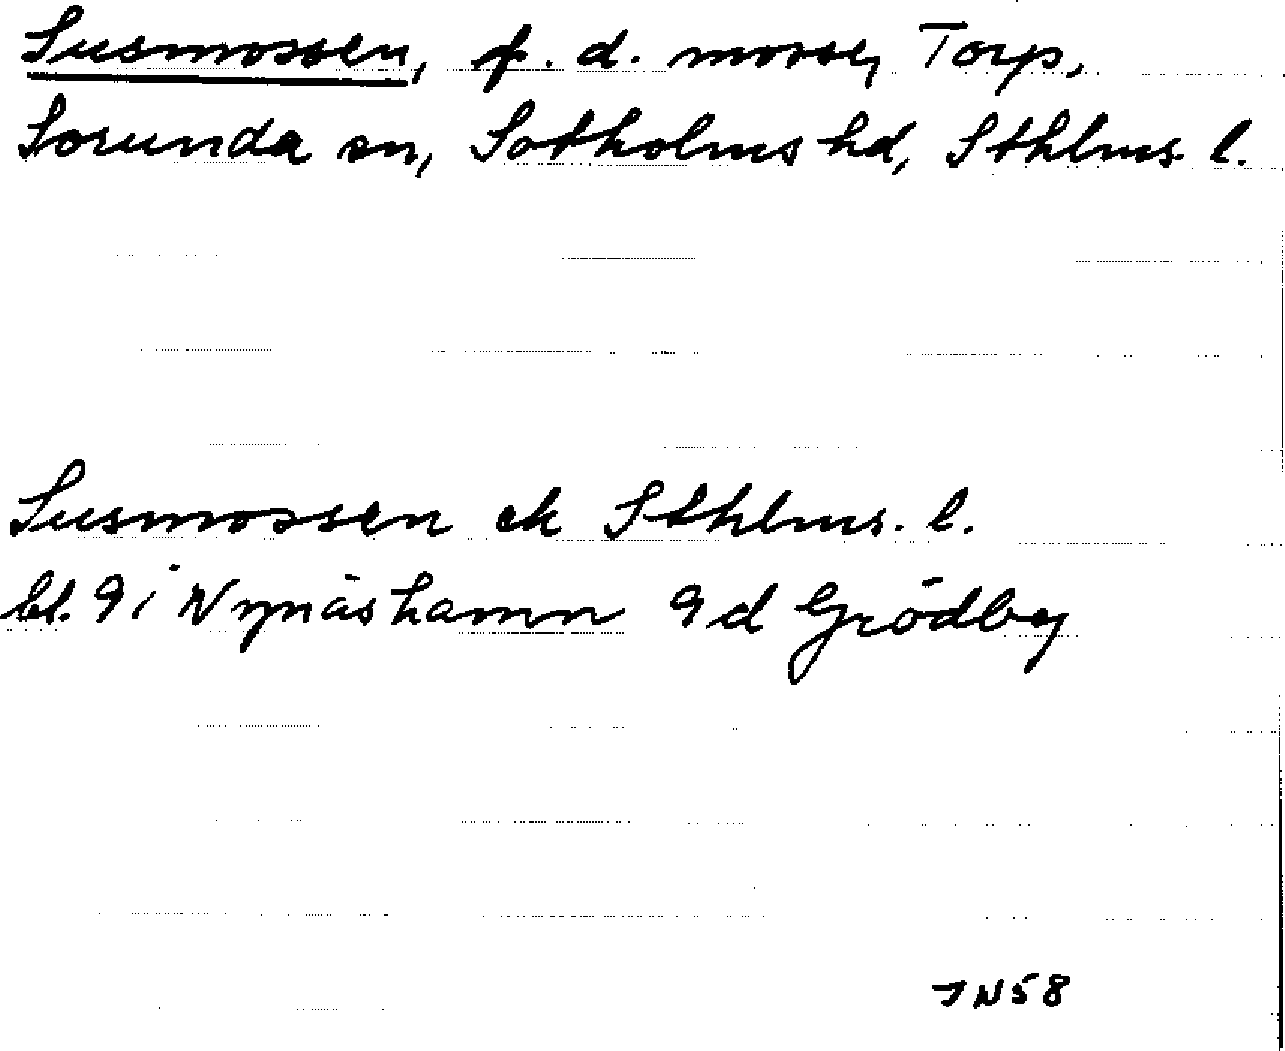 Susmossen, f. d. mosse, Torp,
Sorunda sn, Sotholms hd, Sthlms. l.
Susmossen ek Sthlms. l.
bl. 9 i Nynäshamn 9 d Grödby
JN58